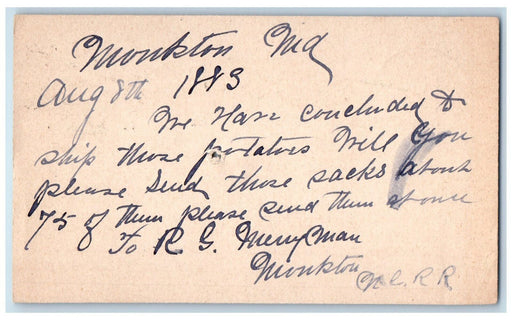 Monkton Md
Aug 8th 1883
We Have concluded to
ship those potatoes Will you
please Send those sacks about
75 of them please send them at once
To R. G. Merryman
Monkton N. C. R R